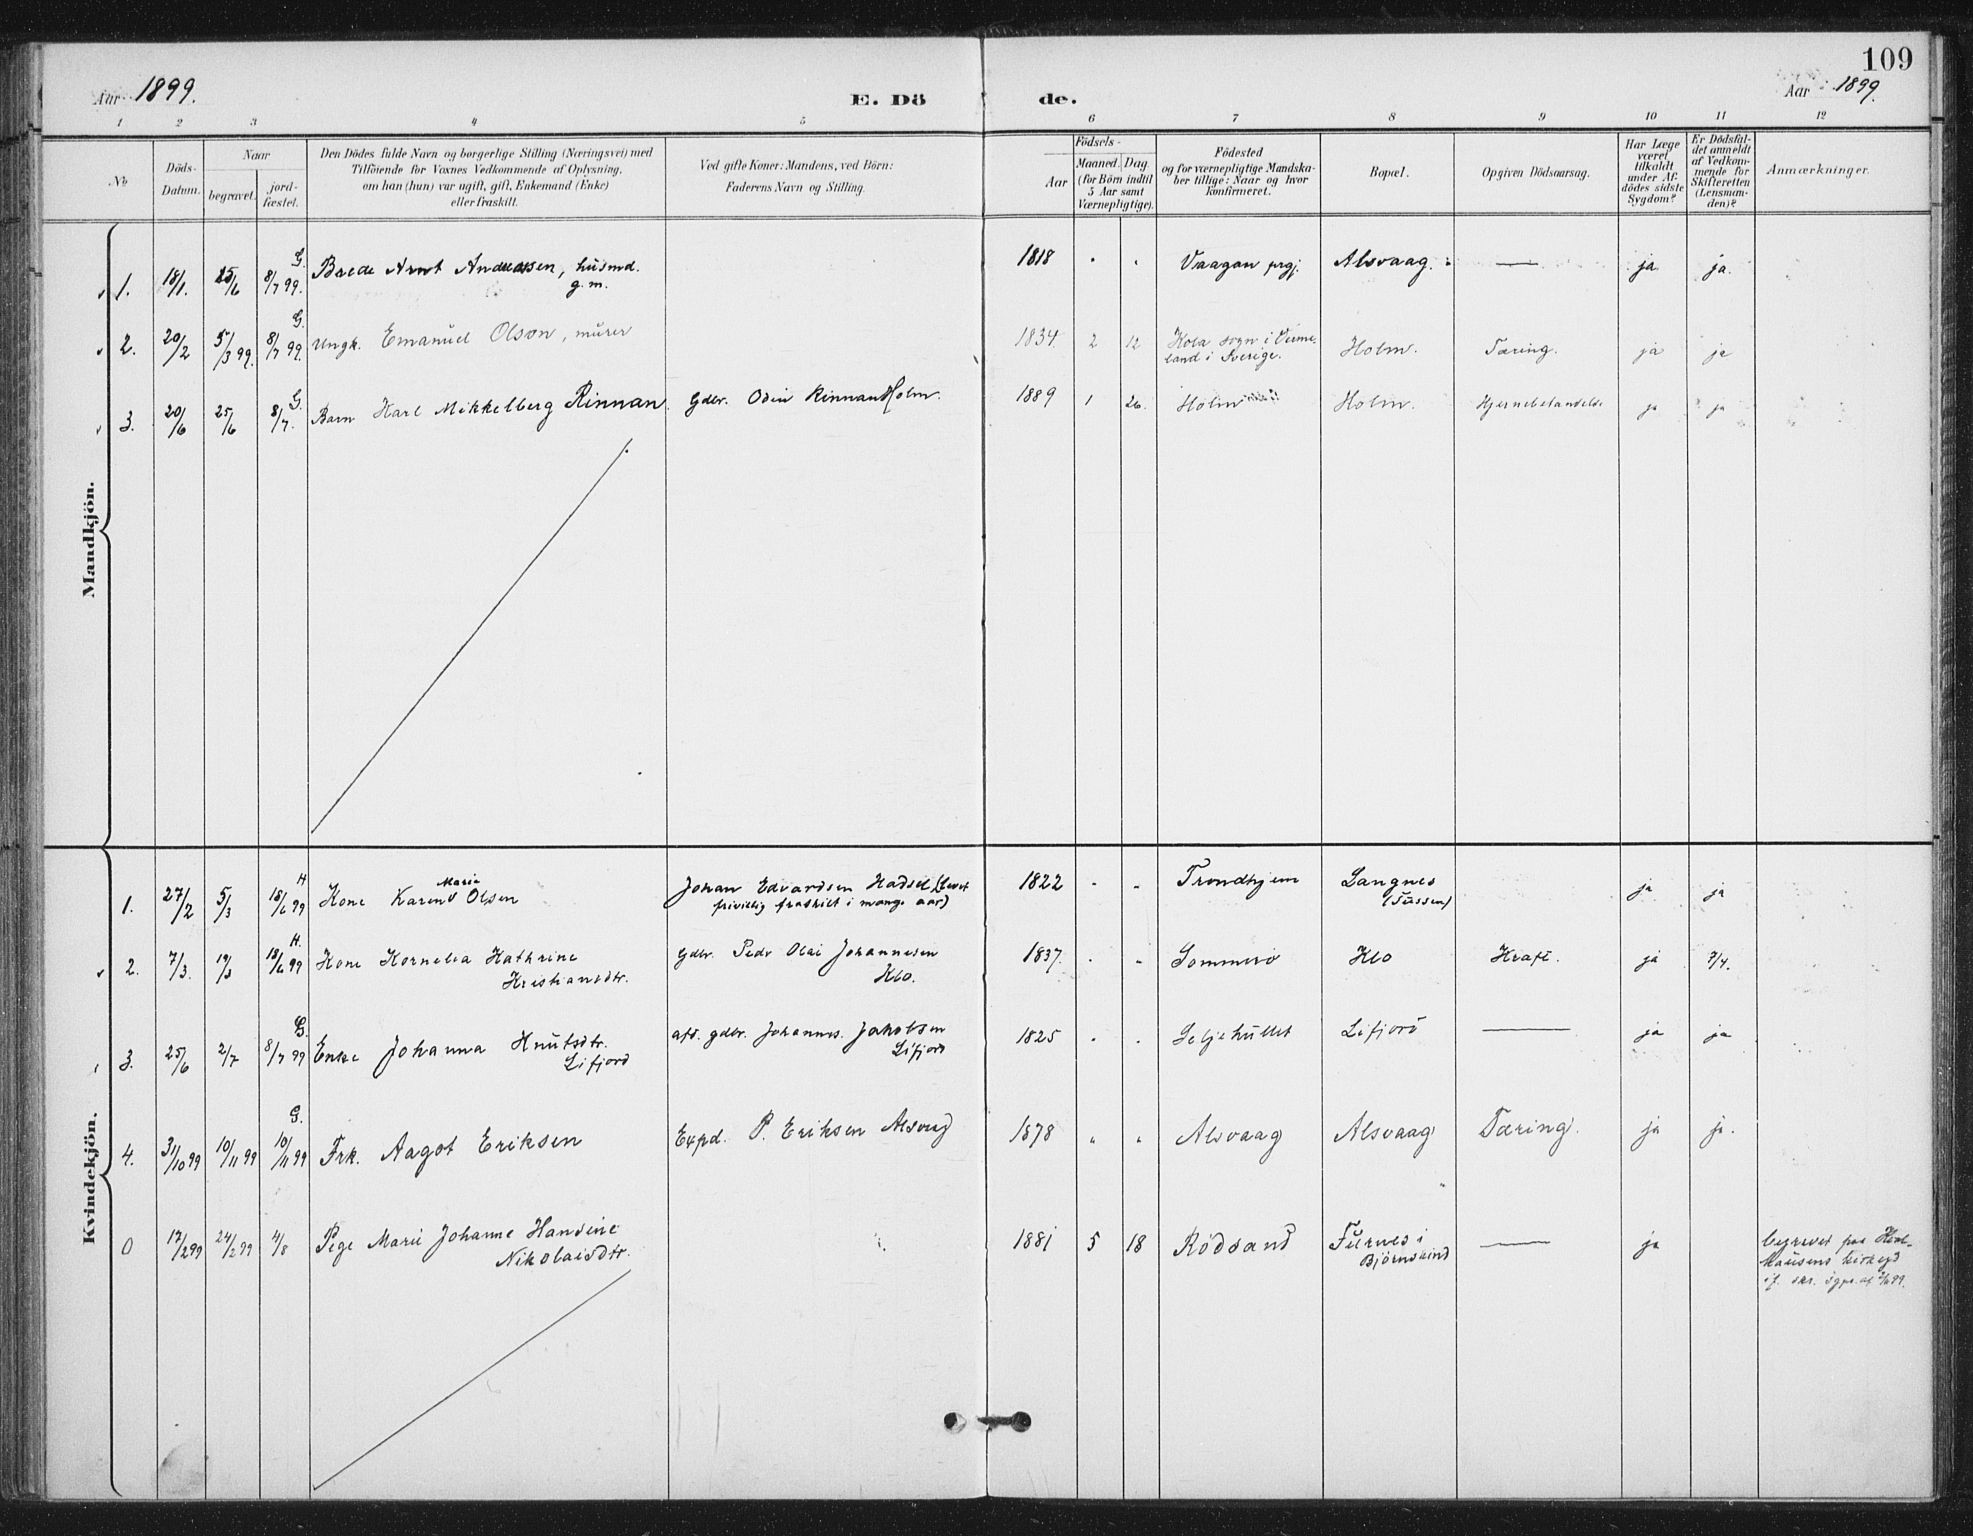 109
Aar 1899. E. Dö de. Aar 1899.
1 2 3 4 5 6 7 8 9 10 11 12
No
Döds-
Datum.
Naar
begravet.
jord-
fæstet.
Den Dödes fulde Navn og borgerlige Stilling (Næringsvei) med
Tilföiende for Voxnes Vedkommende af Oplysning,
om han (hun) var ugift, gift, Enkemand (Enke)
eller fraskilt.
Ved gifte Koner: Mandens, ved Börn:
Faderens Navn og Stilling.
Födsels-
Aar
Maaned. Dag.
(for Börn indtil
5 Aar samt
Værnepligtige).
Födested
og for værnepligtige Mandska-
ber tillige: Naar og hvor
konfirmeret.
Bopæl.
Opgiven Dödsaarsag.
Har Læge
været
tilkaldt
under Af-
dödes sidste
Sygdom?
Er Dödsfal-
det anmeldt
af Vedkom-
mende for
Skifteretten
(Lensman-
den)?
Anmærkninger.
Mandkjön.
1. 18/1. 25/6 G. 8/7 99. Brede Arnt Andreassen, husmd. 1818 " " Vaagan prgj. Alsvaag. — ja ja.
g.m.
2. 20/2 5/3 99. G. 8/7 99. Ungk. Emanuel Olson, murer 1834 2 12 Kola sogn i Verme-
land i Sverige. Holm. Tæring. ja ja
3. 20/6 25/6 G. 8/7. Barn Karl Mikkelberg Rinnan. Gdbr. Odin Rinnan Holm. 1889 1 26. Holm Holm. Hjernebetændelse ja ja
Kvindekjön.
1. 27/2 5/3 H 18/6 99 Kone Karen Marie Olsen Johan Edvardsen Hadsel (levet
frivillig fraskilt i mange aar) 1822 " " Trondhjem Langnes
(Tussen) ja ja
2. 7/3. 19/3 H. 18/6 99 Kone Kornelia Kathrine
Kristiansdtr. Gdbr. Peder Olai Johannesen
Klo. 1837. " " Sommerö Klo Kræft. ja 7/4.
3. 25/6 2/7 G. 8/7 99 Enke Johanna Knutsdtr.
Lifjord afd. gdbr. Johannes Jakobsen
Lifjord 1825 " " Seljehullet Lifjord — ja ja
4. 31/10 99 10/11 99 G. 10/11 99 Frk. Aagot Eriksen Expd. P. Eriksen Alsvaag 1878 " " Alsvaag Alsvaag Tæring. ja ja.
0 17/2 99 24/2 99 4/8 Pige Marie Johanne Hansine
Nikolaisdtr. 1881 5 18 Rödsand
Björnskind — ja
begravet paa
kirkegd